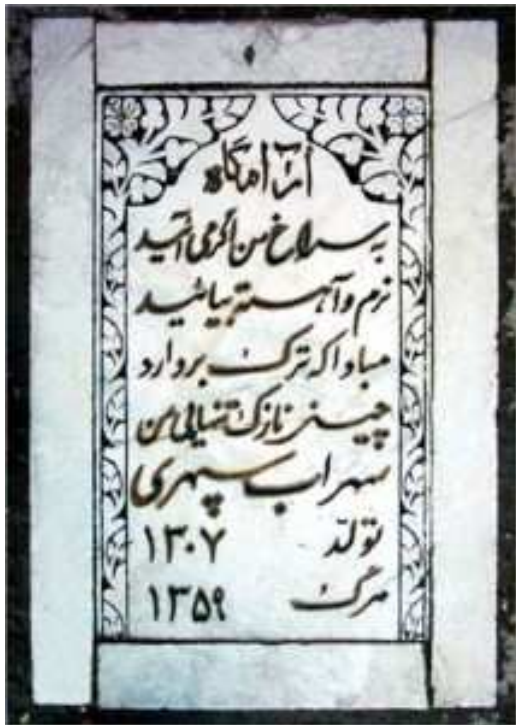 آرامگاه
به سراغ من اگر می آئید
نرم و آهسته بیائید
مبادا که ترک بردارد
چینی نازک تنهایی من
سهراب سپهری
تولد ۱۳۰۷
مرگ ۱۳۵۹